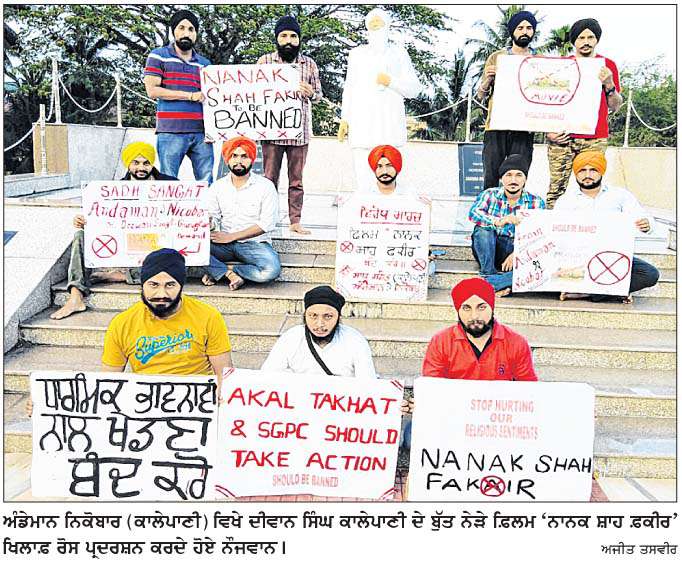 NANAK
SHAH FAKIR
TO BE
BANNED
MOVIE
SHOULD BE BANNED
SADH SANGAT
Andaman Nicobar
ਵਿਰੋਧ ਮਾਰਚ
ਫਿਲਮ ਨਾਨਕ
ਸ਼ਾਹ ਫਕੀਰ
Superior
ਧਾਰਮਿਕ ਭਾਵਨਾਵਾਂ
ਨਾਲ ਖੇਡਣਾ
ਬੰਦ ਕਰੋ
AKAL TAKHAT
& SGPC SHOULD
TAKE ACTION
SHOULD BE BANNED
STOP HURTING
OUR
RELIGIOUS SENTIMENTS
NANAK SHAH
FAKIR
ਅੰਡੇਮਾਨ ਨਿਕੋਬਾਰ (ਕਾਲੇਪਾਣੀ) ਵਿਖੇ ਦੀਵਾਨ ਸਿੰਘ ਕਾਲੇਪਾਣੀ ਦੇ ਬੁੱਤ ਨੇੜੇ ਫ਼ਿਲਮ ‘ਨਾਨਕ ਸ਼ਾਹ ਫ਼ਕੀਰ’
ਖਿਲਾਫ਼ ਰੋਸ ਪ੍ਰਦਰਸ਼ਨ ਕਰਦੇ ਹੋਏ ਨੌਜਵਾਨ।
ਅਜੀਤ ਤਸਵੀਰ